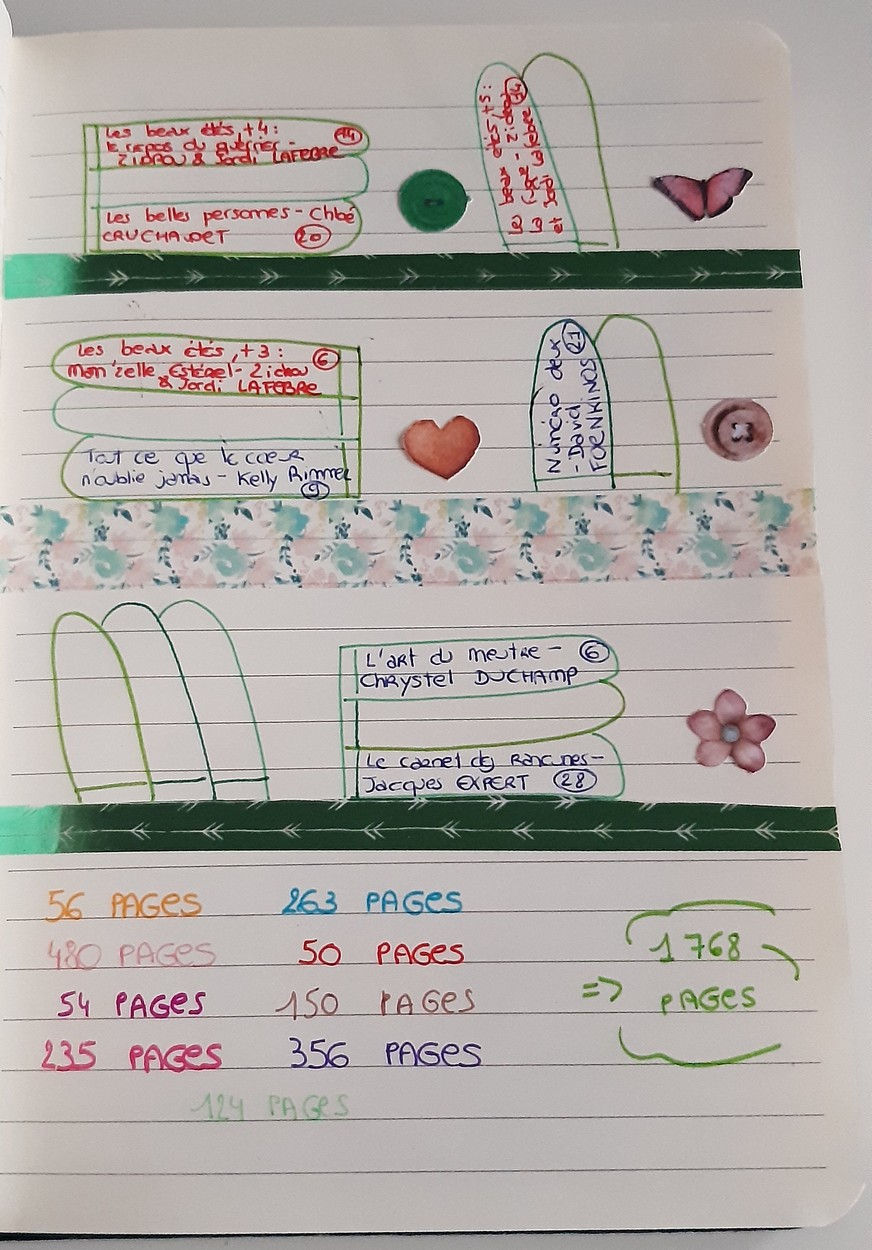 Les beaux étés, t4 : 14
le repos du guerrier -
ZIDROU & Jordi LAFEBRE
Les belles personnes - Chloé
CRUCHAUDET 20
Les beaux étés, t5 :
14
Les beaux étés, t3 : 6
Mam'zelle Estérel - Zidrou
& Jordi LAFEBRE
Tout ce que le coeur
n'oublie jamais - Kelly Rimmer
9
Numéro deux 21
- David
FOENKINOS
L'ART du meurtre - 6
CHRYSTEL DUCHAMP
Le carnet des Rancunes -
Jacques EXPERT 28
56 PAGES 263 PAGES
480 PAGES 50 PAGES
54 PAGES 150 PAGES
235 PAGES 356 PAGES
124 PAGES
=> 1768
PAGES